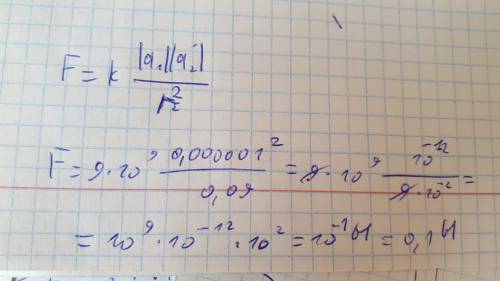 F = k |q₁||q₂| / r²
F = 9·10⁹ 0,000001² / 0,09 = 9·10⁹ 10⁻¹² / 9·10⁻² =
= 10⁹·10⁻¹²·10² = 10⁻¹ Н = 0,1 Н